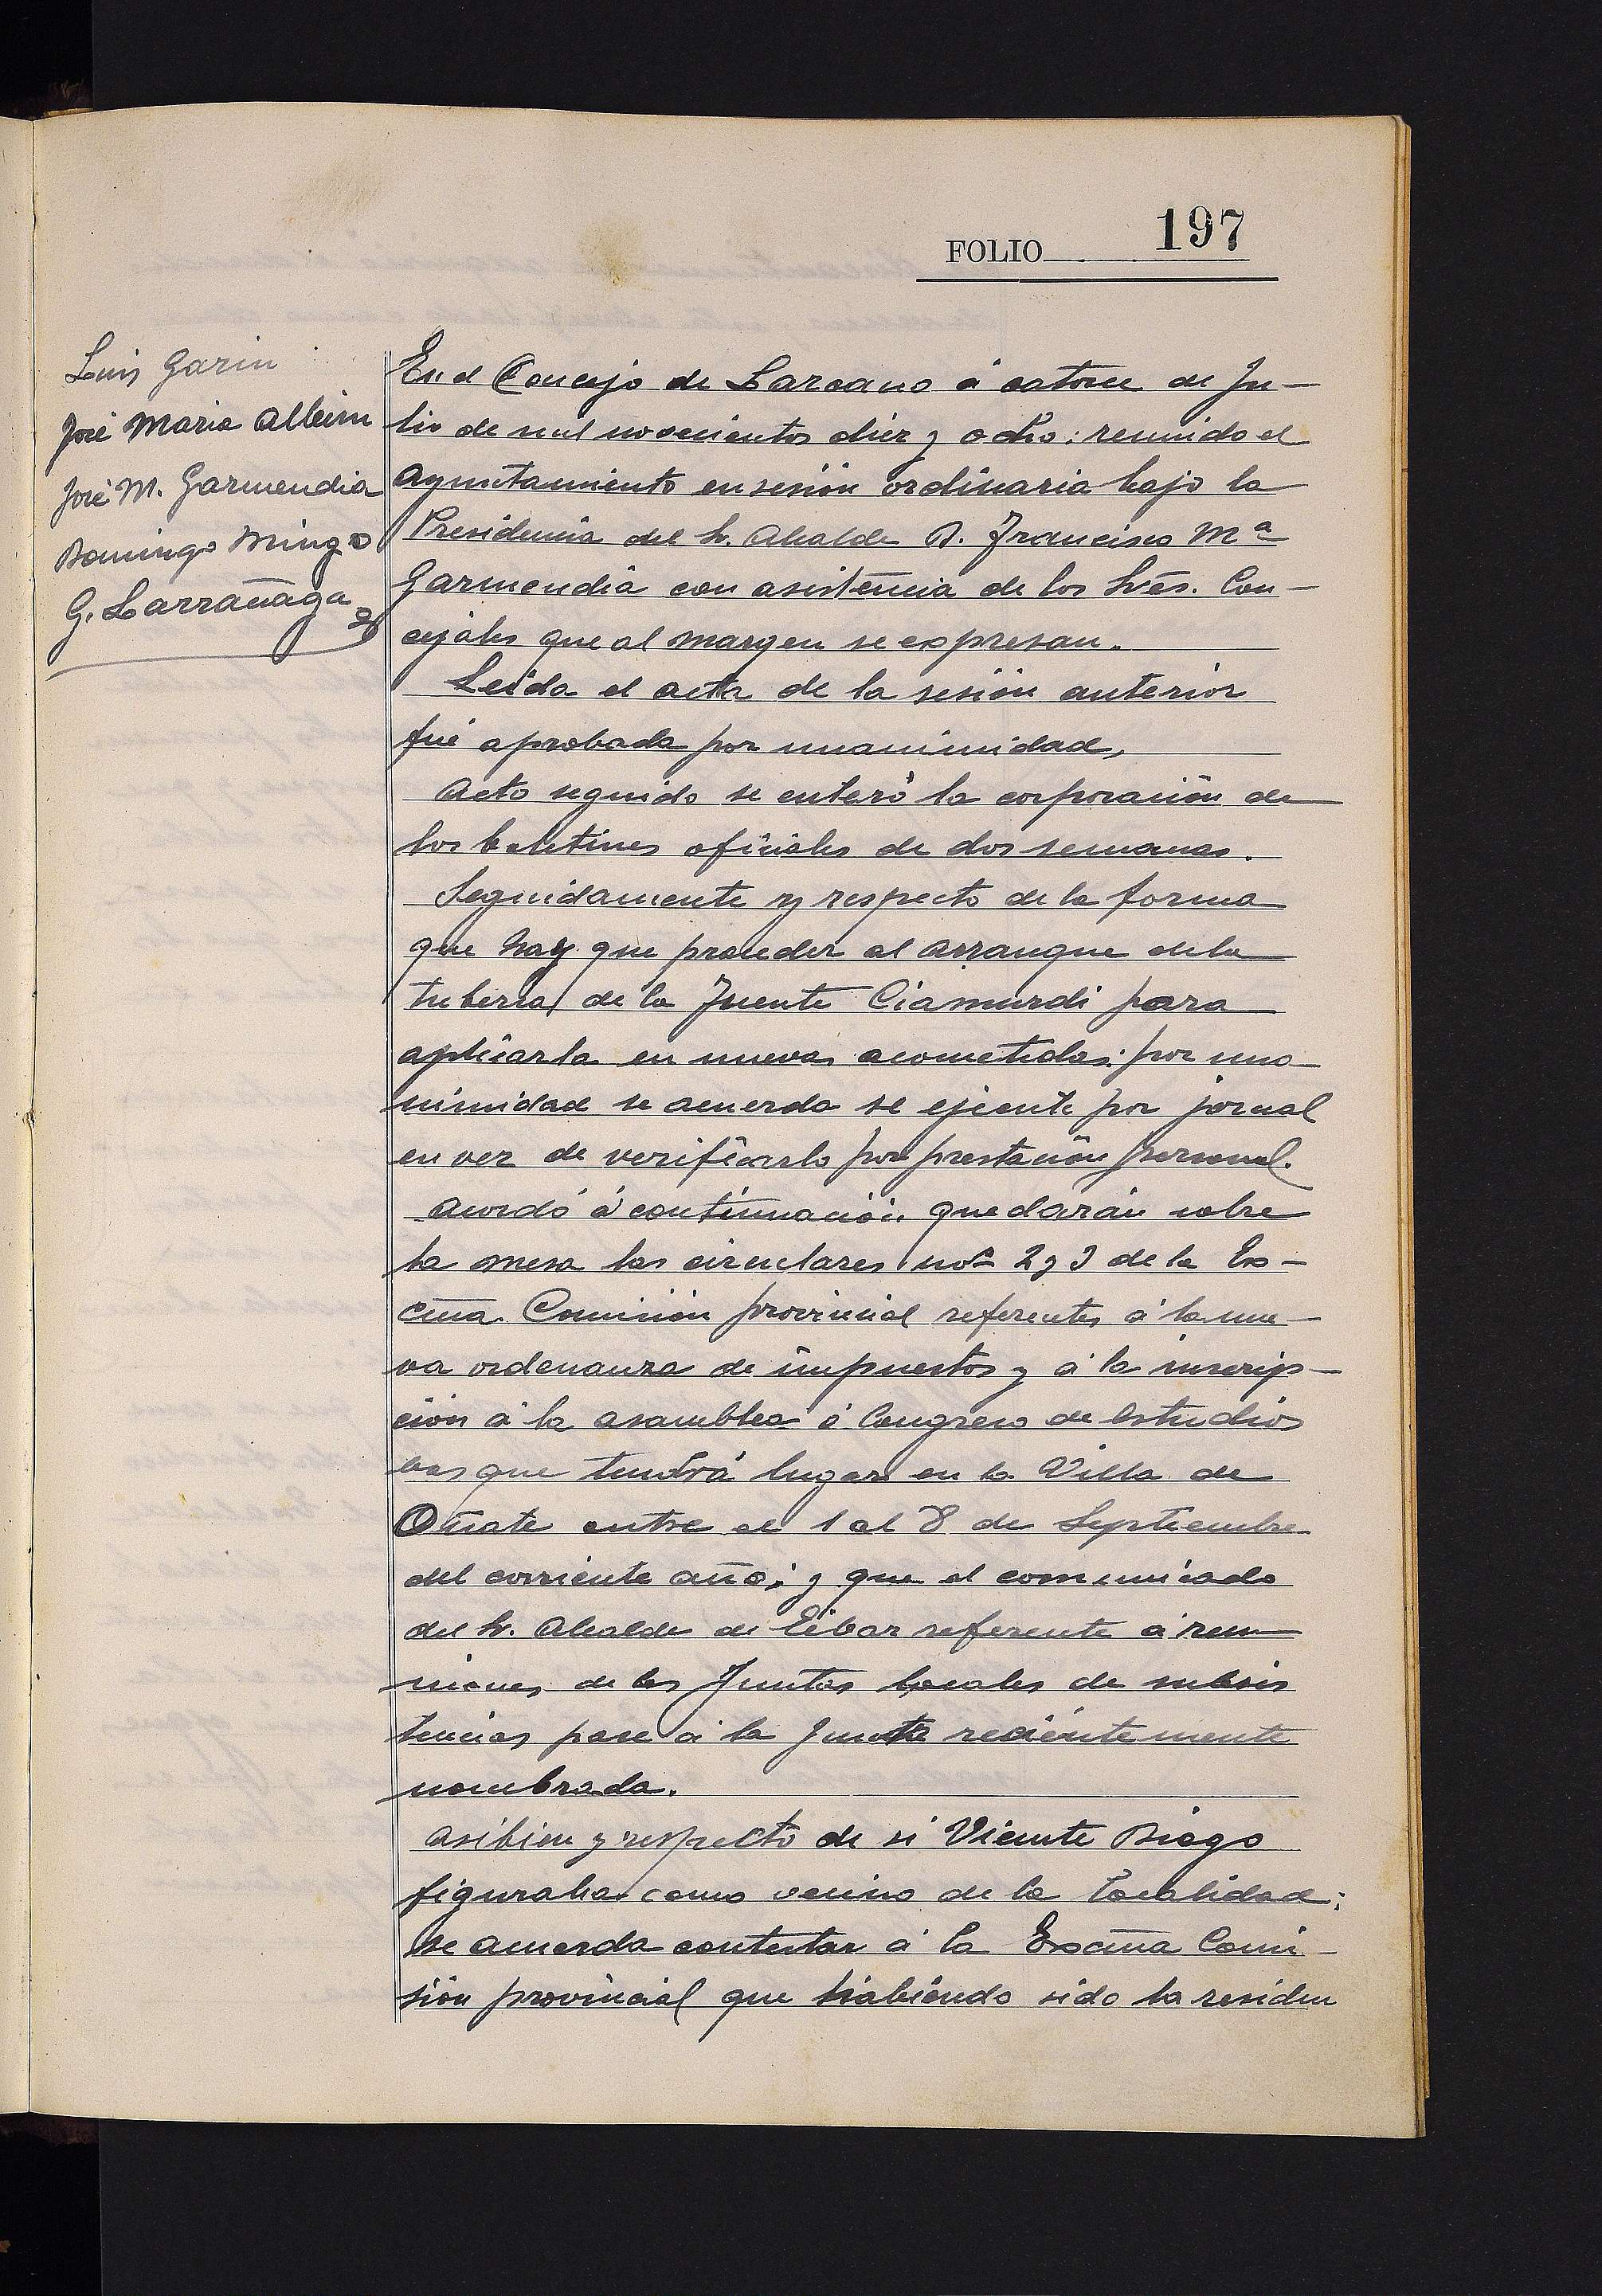 FOLIO 197
Luis Garin
José Maria Alberin
José M. Garmendia
Domingo Mingo
G. Larrañaga
En el Concejo de Lazcano á catorce de Ju-
lio de mil novecientos diez y ocho: reunido el
Ayuntamiento en sesión ordinaria bajo la
Presidencia del Sr. Alcalde D. Francisco Mª
Garmendia con asistencia de los Sres. Con-
cejales que al margen se expresan.
Leida el acta de la sesión anterior
fué aprobada por unanimidad.
Acto seguido se enteró la corporación de
los boletines oficiales de dos semanas.
Seguidamente y respecto de la forma
que hay que proceder al arranque de la
tuberia de la Fuente Ciamurdi para
aplicarla en nuevas acometidas: por una-
nimidad se acuerda se ejecute por jornal
en vez de verificarlo por prestación personal.
Acordó á continuación quedarán sobre
la mesa las circulares nos 2 y 3 de la Ex-
cma. Comisión provincial referentes á la nue-
va ordenanza de impuestos y á la inscrip-
ción á la asamblea ó Congreso de estudios
vas que tendrá lugar en la Villa de
Oñate entre el 1 al 8 de Septiembre
del corriente año; y que el comunicado
del Sr. Alcalde de Eibar referente á reu-
niones de las Juntas locales de subsis
tencias pase á la Junta recientemente
nombrada.
Asibien y respecto de si Vicente Diego
figuraba como vecino de la localidad;
se acuerda contestar á la Excma Comi-
sión provincial que habiendo sido la residen